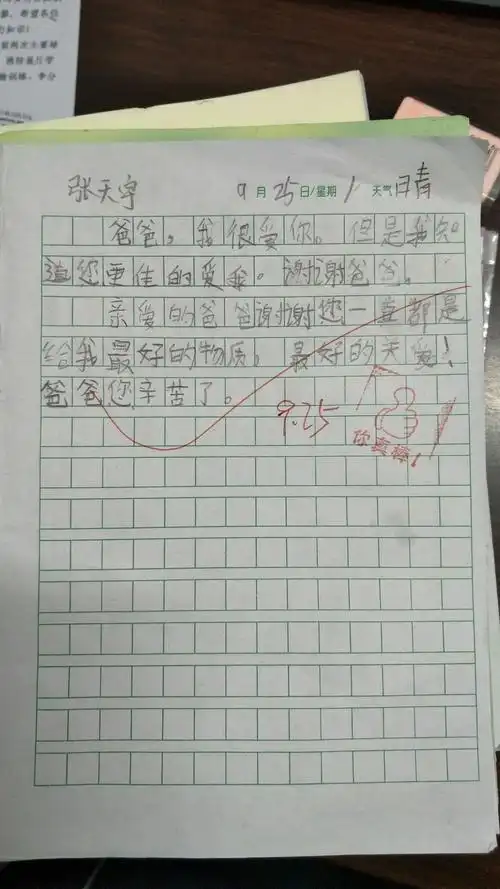 张天宇 9月25日/星期1 天气晴
爸爸，我很爱你。但是我知
道您更佳的爱我。谢谢爸爸。
亲爱的爸爸谢谢您一直都是
给我最好的物质。最好的关爱！
爸爸您辛苦了。
9.25
你真棒！